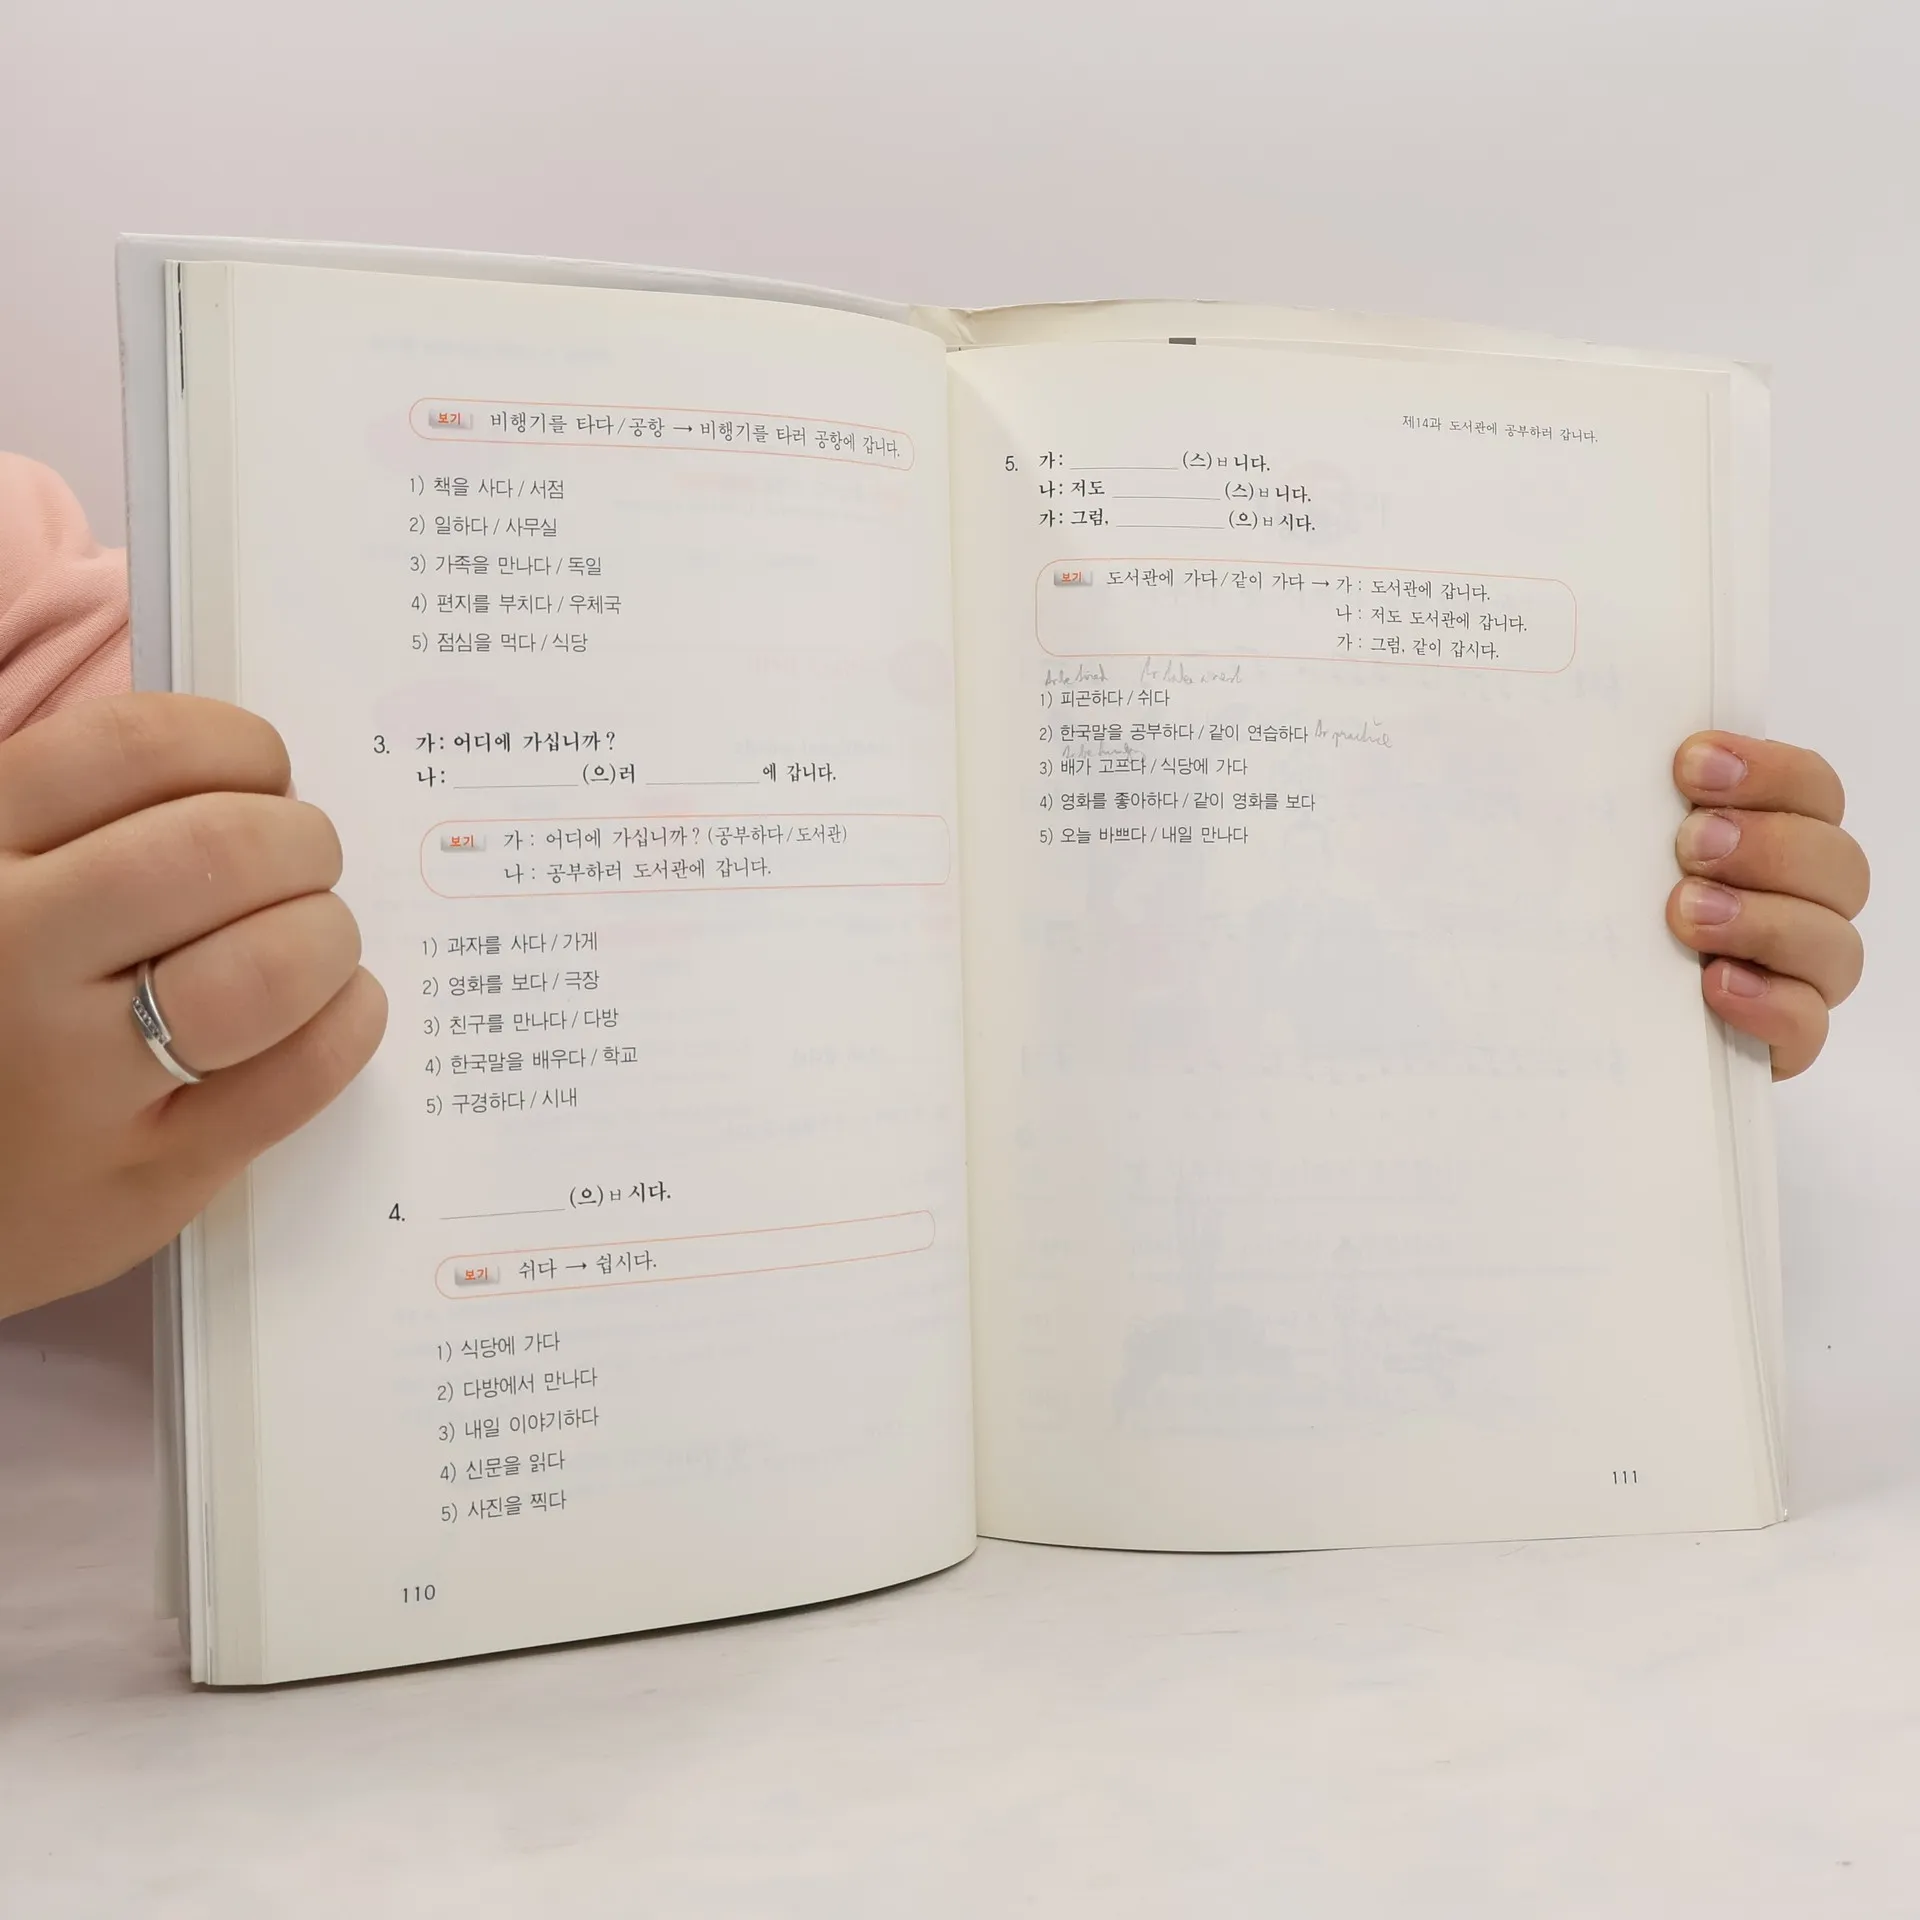 보기 비행기를 타다 / 공항 → 비행기를 타러 공항에 갑니다.
1) 책을 사다 / 서점
2) 일하다 / 사무실
3) 가족을 만나다 / 독일
4) 편지를 부치다 / 우체국
5) 점심을 먹다 / 식당
3. 가: 어디에 가십니까?
나: ____________ (으)러 ____________ 에 갑니다.
보기 가 : 어디에 가십니까? (공부하다 / 도서관)
나 : 공부하러 도서관에 갑니다.
1) 과자를 사다 / 가게
2) 영화를 보다 / 극장
3) 친구를 만나다 / 다방
4) 한국말을 배우다 / 학교
5) 구경하다 / 시내
4. ____________ (으)ㅂ시다.
보기 쉬다 → 쉽시다.
1) 식당에 가다
2) 다방에서 만나다
3) 내일 이야기하다
4) 신문을 읽다
5) 사진을 찍다
110
제14과 도서관에 공부하러 갑니다.
5. 가: ____________ (스)ㅂ니다.
나: 저도 ____________ (스)ㅂ니다.
가: 그럼, ____________ (으)ㅂ시다.
보기 도서관에 가다 / 같이 가다 → 가 : 도서관에 갑니다.
나 : 저도 도서관에 갑니다.
가 : 그럼, 같이 갑시다.
to be tired to take a rest
1) 피곤하다 / 쉬다
2) 한국말을 공부하다 / 같이 연습하다 to practice
to be hungry
3) 배가 고프다 / 식당에 가다
4) 영화를 좋아하다 / 같이 영화를 보다
5) 오늘 바쁘다 / 내일 만나다
111